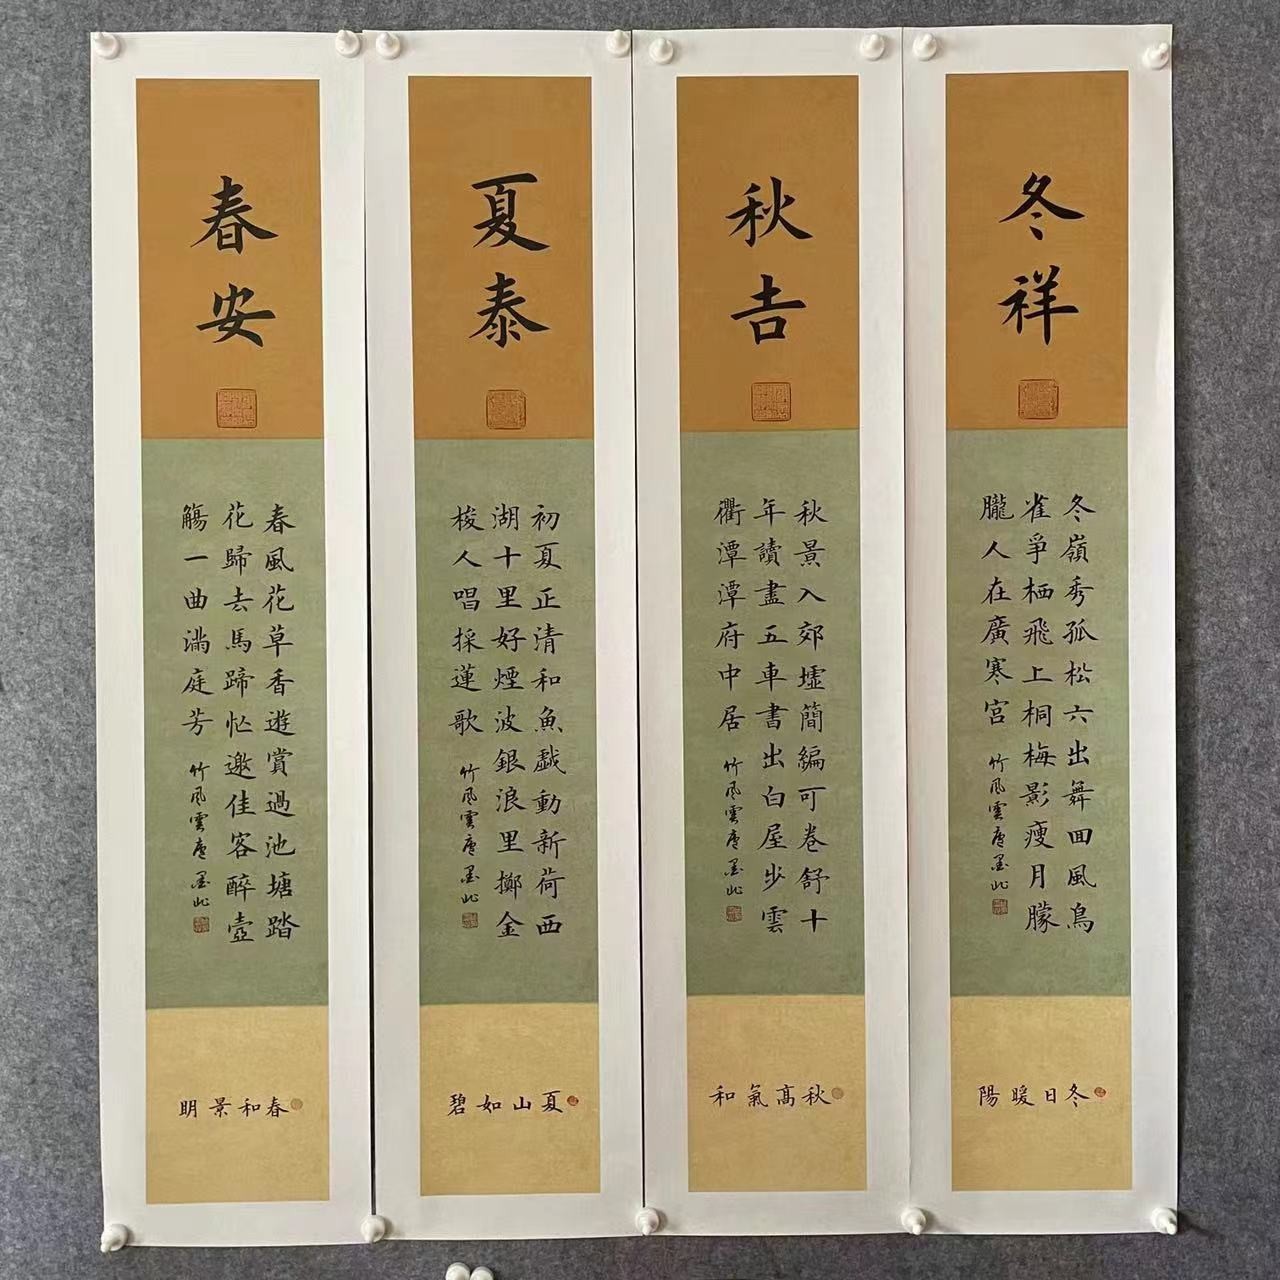 春安
春風花草香遊賞過池塘踏
花歸去馬蹄忙邀佳客醉壺
觴一曲滿庭芳 竹风雲
春和景明
夏泰
初夏正清和魚戲動新荷西
湖十里好煙波銀浪里擲金
梭人唱採蓮歌 竹风雲
夏山如碧
秋吉
秋景入郊墟簡編可卷舒十
年讀盡五車書出白屋步雲
衢潭潭府中居 竹风雲
秋高氣和
冬祥
冬嶺秀孤松六出舞回風鳥
雀爭栖飛上桐梅影瘦月朦
朧人在廣寒宮 竹风雲
冬日暖陽